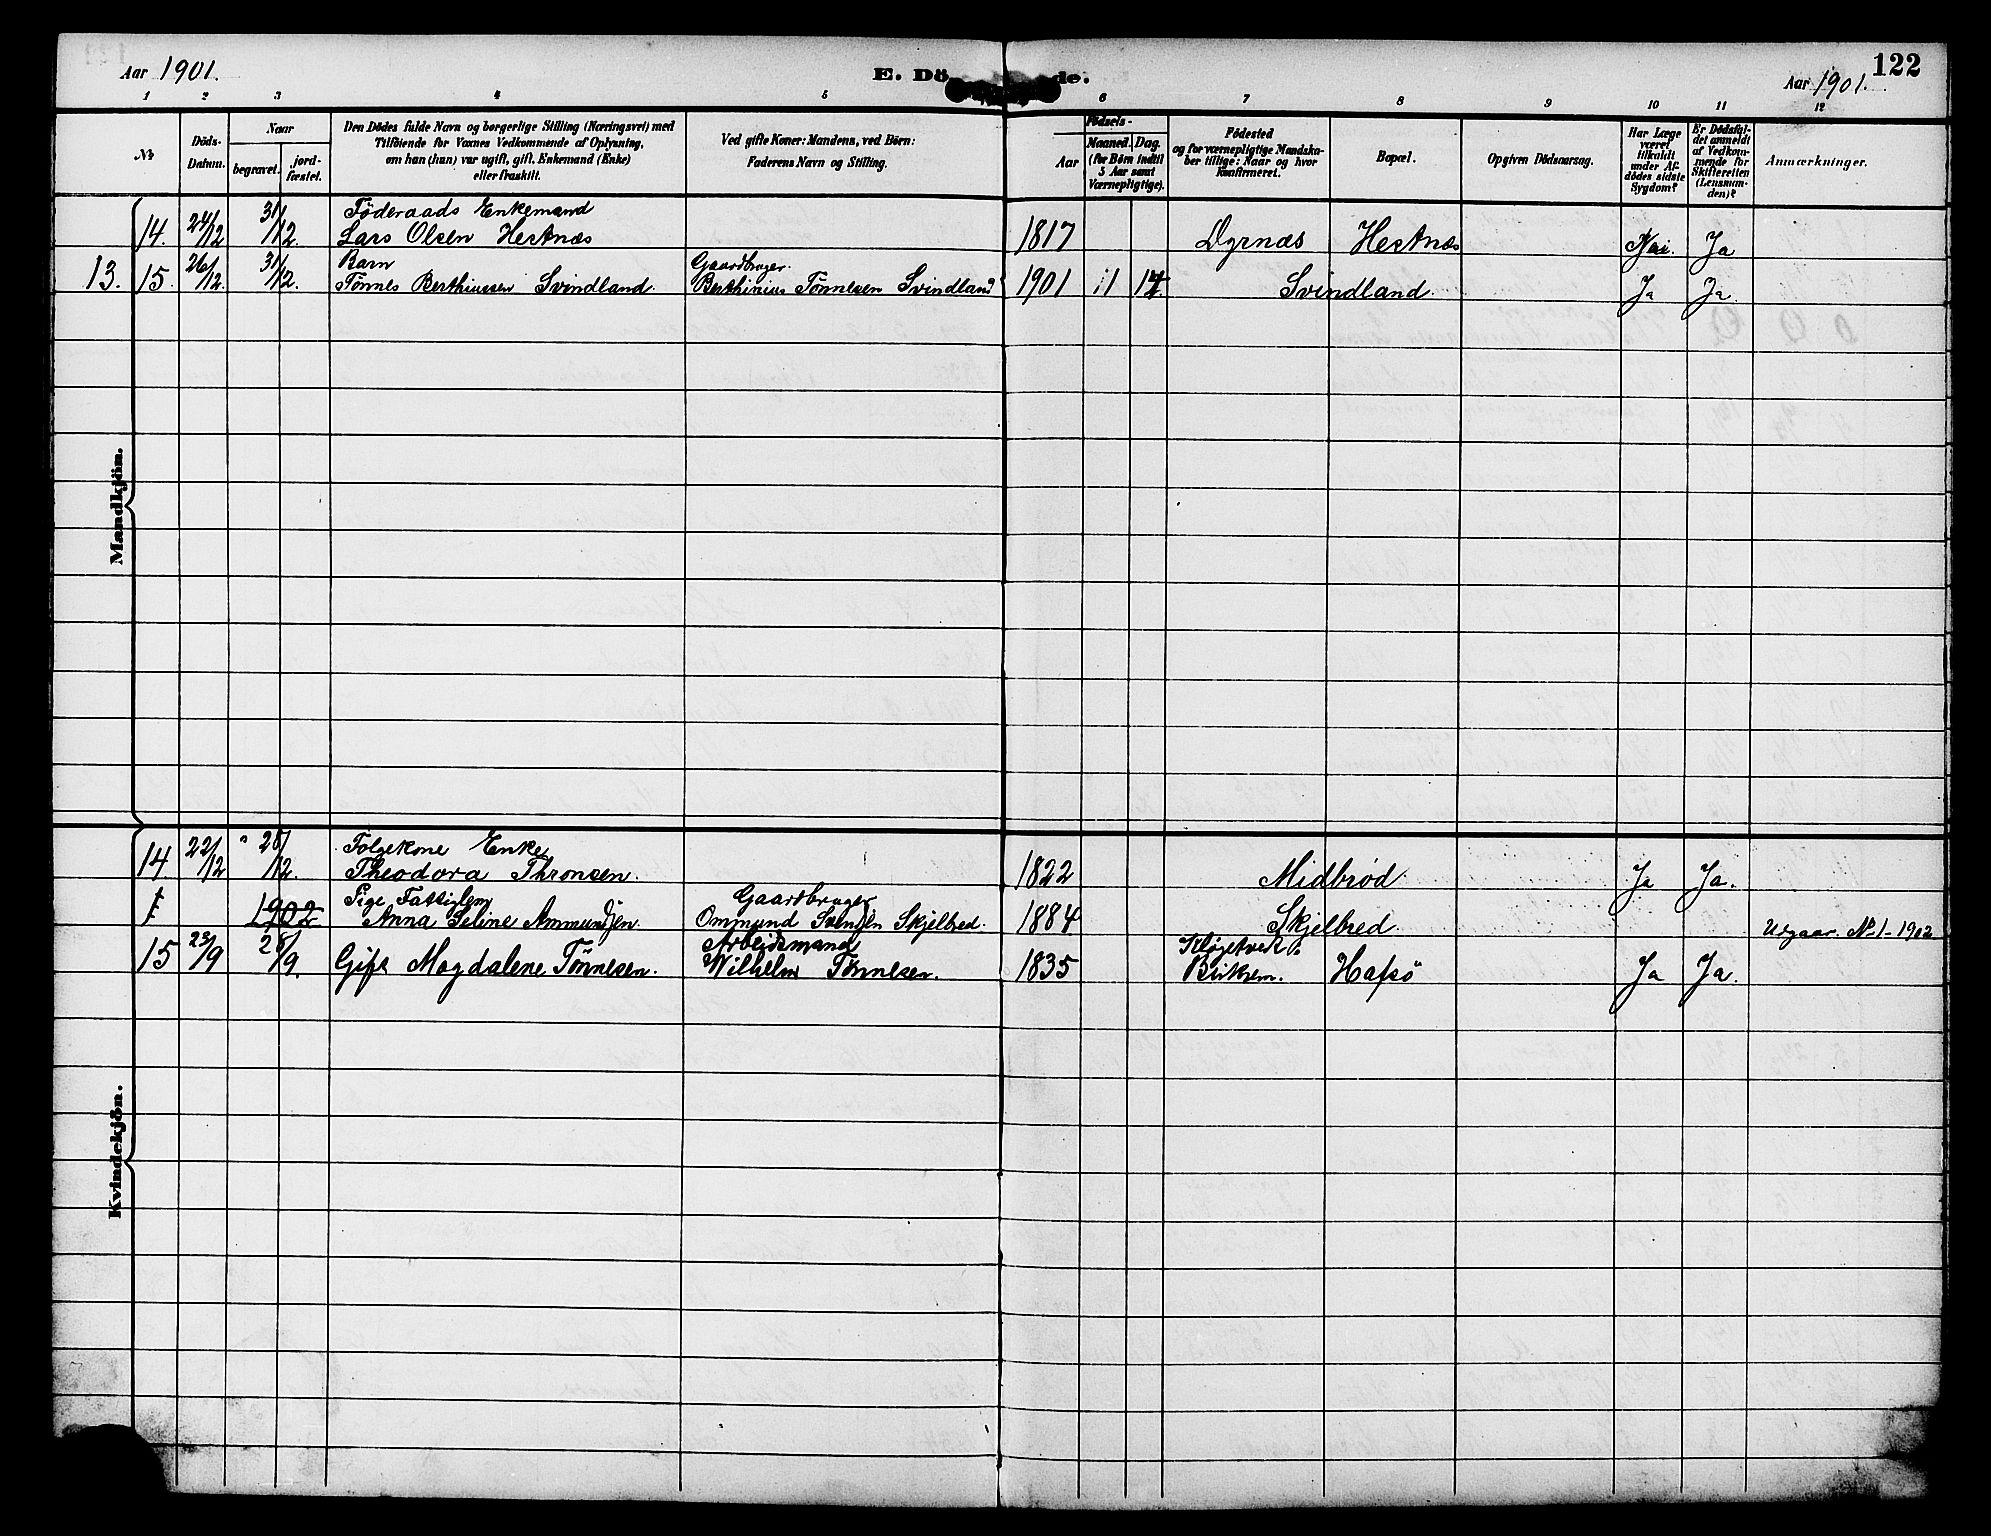 Aar 1901.
E. Dö de.
122
Aar 1901.
1 2 3 4 5 6 7 8 9 10 11 12
No
Döds-
Datum.
Naar
begravet.
jord-
fæstet.
Den Dödes fulde Navn og borgerlige Stilling (Næringsvei) med
Tilföiende for Voxnes Vedkommende af Oplysning,
om han (hun) var ugift, gift, Enkemand (Enke)
eller fraskilt.
Ved gifte Koner: Mandens, ved Börn:
Faderens Navn og Stilling.
Födsels-
Aar
Maaned. Dag.
(for Börn indtil
5 Aar samt
Værnepligtige).
Födested
og for værnepligtige Mandska-
ber tillige: Naar og hvor
konfirmeret.
Bopæl.
Opgiven Dödsaarsag.
Har Læge
været
tilkaldt
under Af-
dödes sidste
Sygdom?
Er Dödsfal-
det anmeldt
af Vedkom-
mende for
Skifteretten
(Lensman-
den)?
Anmærkninger.
Mandkjön.
Föderaads Enkemand
14. 24/12 31/12. Lars Olsen Hestnæs 1817 Dyrnæs Hestnæs Nei. Ja
Barn Gaardbruger.
13. 15. 26/12. 31/12. Tönnes Berthiussen Svindland. Berthinius Tönnesen Svindland 1901 11 14 Svindland. Ja Ja.
Kvindekjön.
Folgekone Enke
14 22/12 28/12. Theodora Thronsen. 1822 Midbrød Ja Ja.
Pige Fattiglem Gaardbruger
1902 Anna Seline Ammundsen Ommund Svendsen Skjelbred. 1884 Skjelbred. Udgaar. No 1 - 1902
Arbeidsmand
15 23/9 28/9. Gift Magdalene Tönnesen. Wilhelm Tönnesen. 1835 Birkrem. Hafsö Ja Ja.